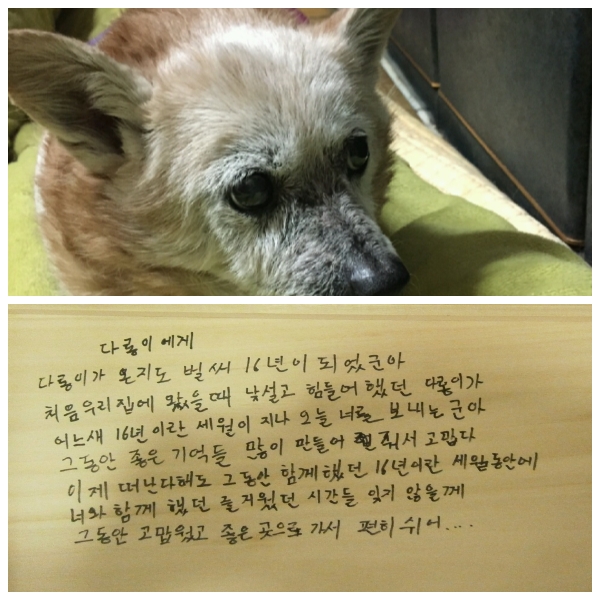 다롱이에게
다롱이가 온지도 벌써 16년이 되었군아
처음 우리집에 왔을때 낯설고 힘들어 했던 다롱이가
어느새 16년이란 세월이 지나 오늘 너를 보내는군아
그동안 좋은 기억들 많이 만들어 줘서 고맙다
이제 떠난다해도 그동안 함께했던 16년이란 세월동안에
너와 함께 했던 즐거웠던 시간들 잊기 않을께
그동안 고맙웠고 좋은 곳으로 가서 편히 쉬어....